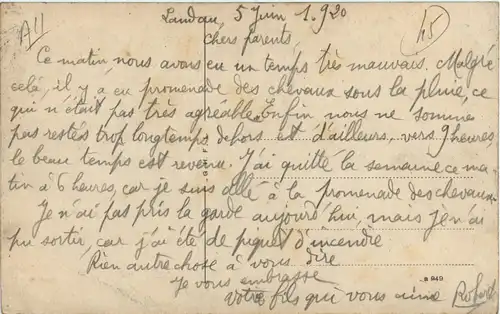 A11
Landau, 5 Juin 1.920
45
Chers parents,
Ce matin, nous avons eu un temps très mauvais. Malgré
celà, il y a eu promenade des chevaux sous la pluie, ce
qui n'était pas très agréable. Enfin nous ne somme
pas restés trop longtemps dehors et d'ailleurs vers 9 heures
le beau temps est revenu. J'ai quitté la semaine ce ma-
tin à 6 heures, car je suis allé à la promenade des chevaux.
Je n'ai pas pris la garde aujourd'hui, mais je n'ai
pu sortir, car j'ai été de piquet d'incendie
Rien autre chose à vous dire
Je vous embrasse
votre fils qui vous aime Robert
B 949